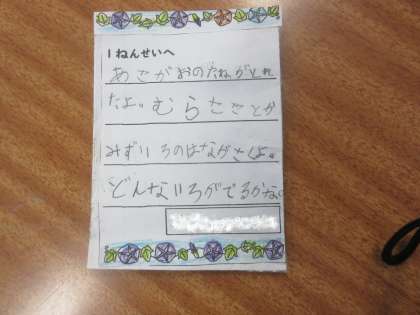 1ねんせいへ
あさがおのたねがとれ
たよ。むらさきとか
みずいろのはながさくよ。
どんないろがでるかな。